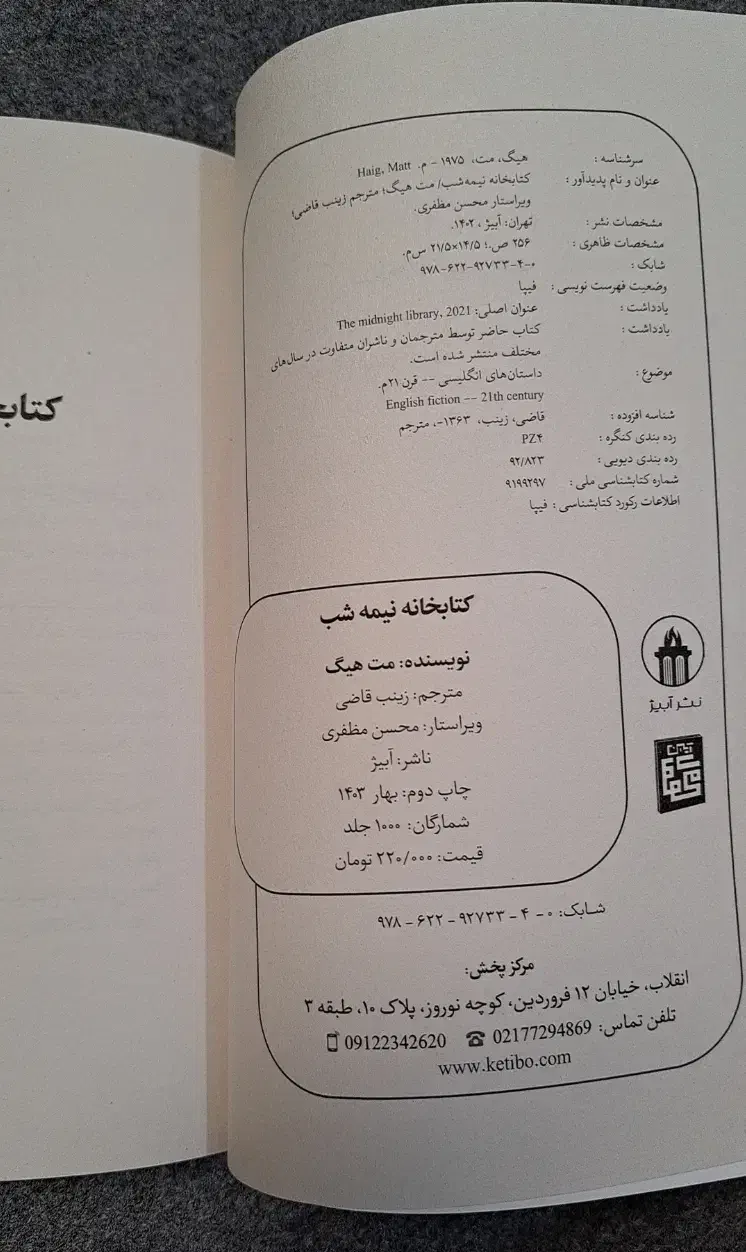 سرشناسه : هیگ، مت، ۱۹۷۵ - م. Haig, Matt
عنوان و نام پدیدآور : کتابخانه نیمه‌شب/ مت هیگ؛ مترجم زینب قاضی؛
ویراستار محسن مظفری.
مشخصات نشر : تهران: آبیژ ، ۱۴۰۲.
مشخصات ظاهری : ۲۵۶ ص.؛ ۱۴/۵×۲۱/۵ س‌م.
شابک : ۹۷۸-۶۲۲-۹۲۷۳۳-۴-۰
وضعیت فهرست نویسی : فیپا
یادداشت : عنوان اصلی: The midnight library, 2021
یادداشت : کتاب حاضر توسط مترجمان و ناشران متفاوت در سال‌های
مختلف منتشر شده است.
موضوع : داستان‌های انگلیسی -- قرن ۲۱م.
English fiction -- 21th century
شناسه افزوده : قاضی، زینب، ۱۳۶۳-، مترجم
رده بندی کنگره : PZ۴
رده بندی دیویی : ۹۲/۸۲۳
شماره کتابشناسی ملی : ۹۱۹۹۲۹۷
اطلاعات رکورد کتابشناسی : فیپا
کتابخانه نیمه شب
نویسنده: مت هیگ
مترجم: زینب قاضی
ویراستار: محسن مظفری
ناشر: آبیژ
چاپ دوم: بهار ۱۴۰۳
شمارگان: ۱۰۰۰ جلد
قیمت: ۲۲۰/۰۰۰ تومان
نشر آبیژ
شابک: ۰ - ۴ - ۹۲۷۳۳ - ۶۲۲ - ۹۷۸
مرکز پخش:
انقلاب، خیابان ۱۲ فروردین، کوچه نوروز، پلاک ۱۰، طبقه ۳
تلفن تماس: 02177294869 09122342620
www.ketibo.com